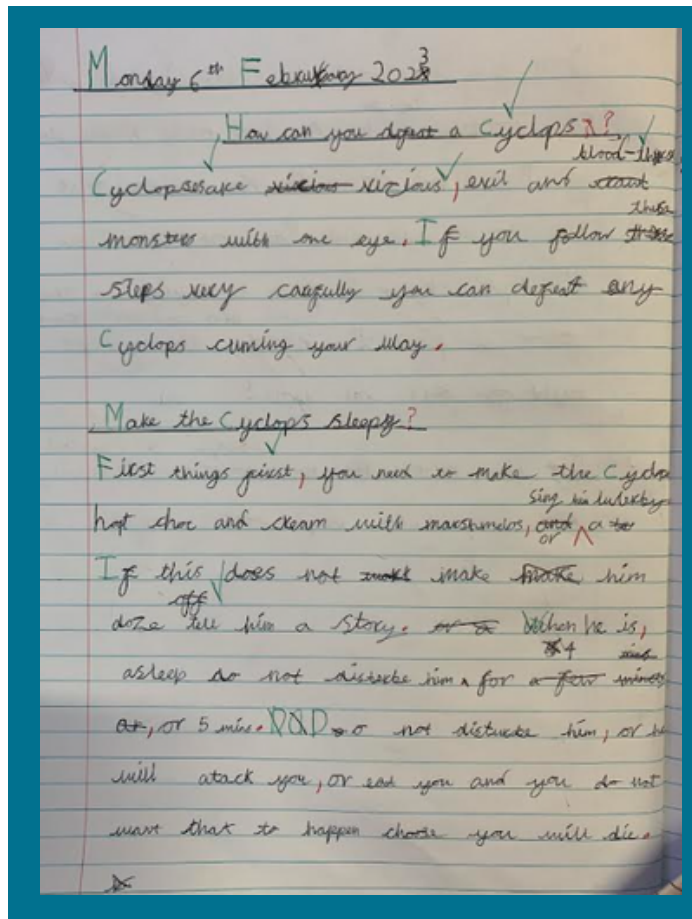 Monday 6th February 2023
How can you defeat a Cyclops?
blood-thirsty
Cyclopses are vicious, evil and
these
monsters with one eye. If you follow
steps very carfully you can defeat any
Cyclops cuming your way.
Make the Cyclops sleepy?
First things first, you need to make the Cyclops
sing him
hopt choc and cream with marshmelos, or a
If this does not make him
off
doze tell him a story. When he is,
4
asleep do not disterbe him for
or 5 mins. Do not disturbe him, or he
will atack you, or eat you and you do not
want that to happen you will die.